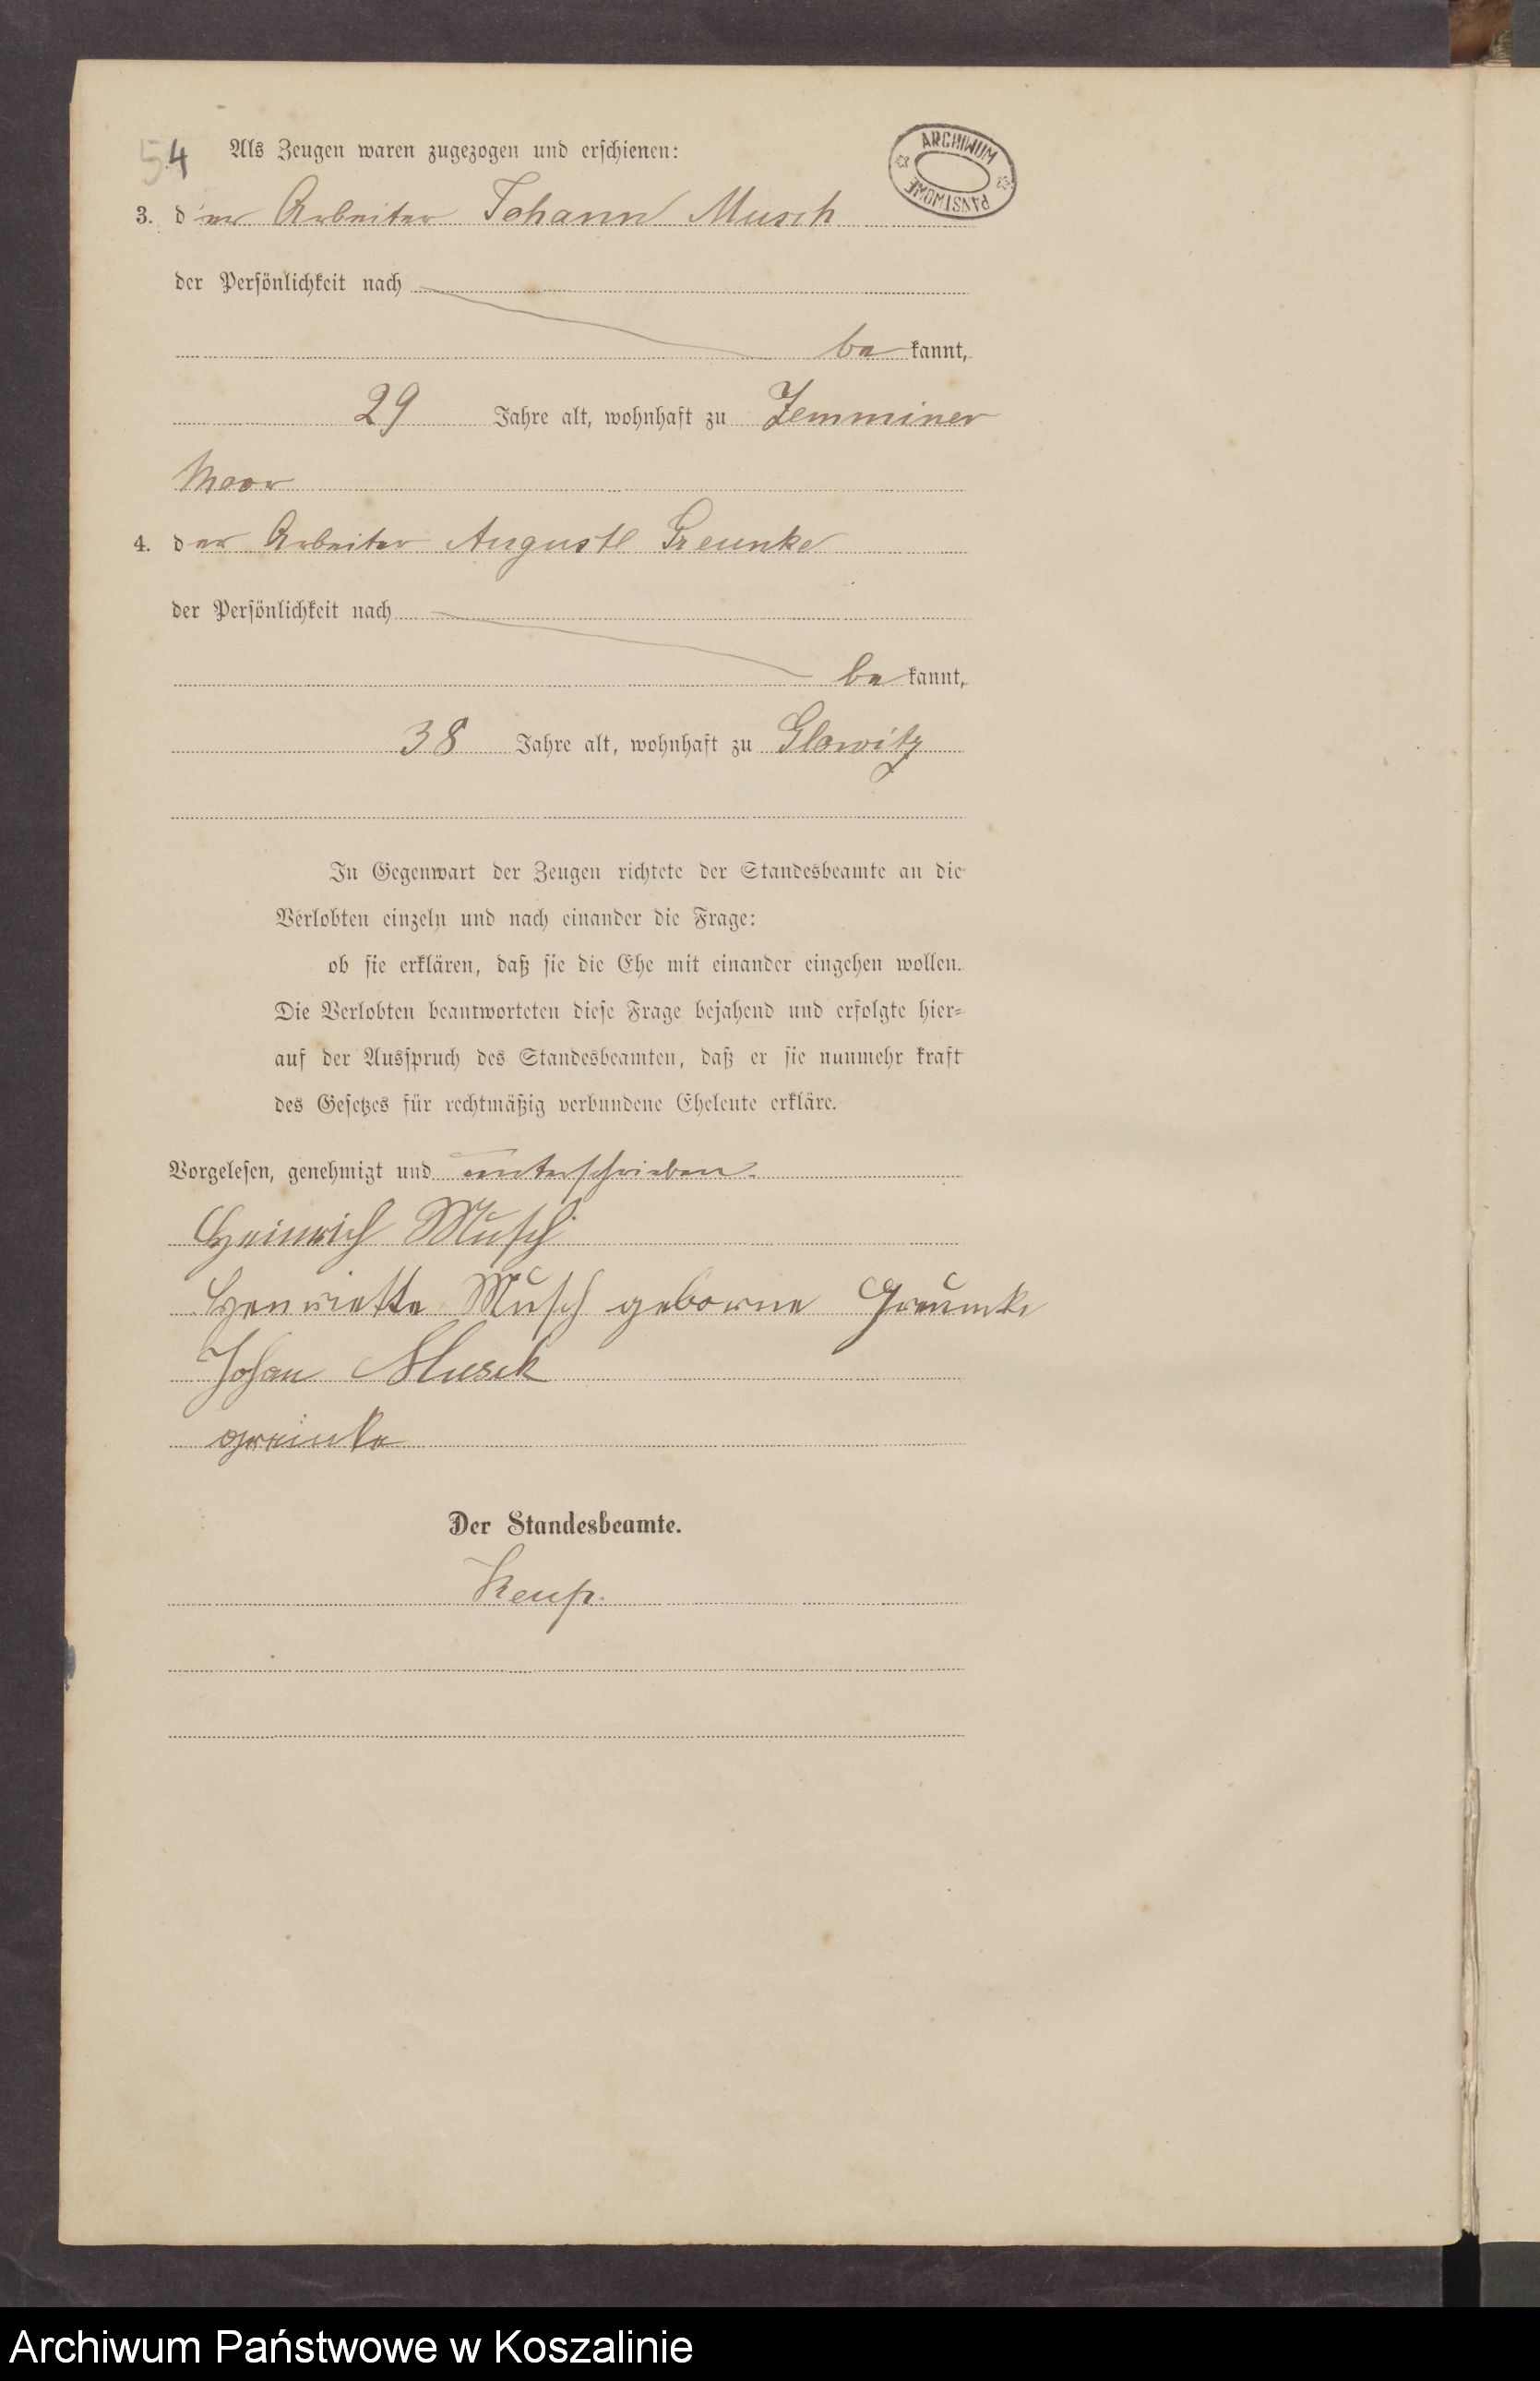 54 Als Zeugen waren zugezogen und erschienen:
ARCHIWUM PAŃSTWOWE
3. der Arbeiter Johann Musch
der Persönlichkeit nach
be kannt,
29 Jahre alt, wohnhaft zu Zemminer
Moor
4. der Arbeiter August Greunke
der Persönlichkeit nach
be kannt,
38 Jahre alt, wohnhaft zu Glowitz
In Gegenwart der Zeugen richtete der Standesbeamte an die
Verlobten einzeln und nach einander die Frage:
ob sie erklären, daß sie die Ehe mit einander eingehen wollen.
Die Verlobten beantworteten diese Frage bejahend und erfolgte hier-
auf der Ausspruch des Standesbeamten, daß er sie nunmehr kraft
des Gesetzes für rechtmäßig verbundene Eheleute erkläre.
Vorgelesen, genehmigt und unterschrieben.
Heinrich Musch
Henriette Musch geborne Greunke
Johan Musch
Greunke
Der Standesbeamte.
Keup.
Archiwum Państwowe w Koszalinie